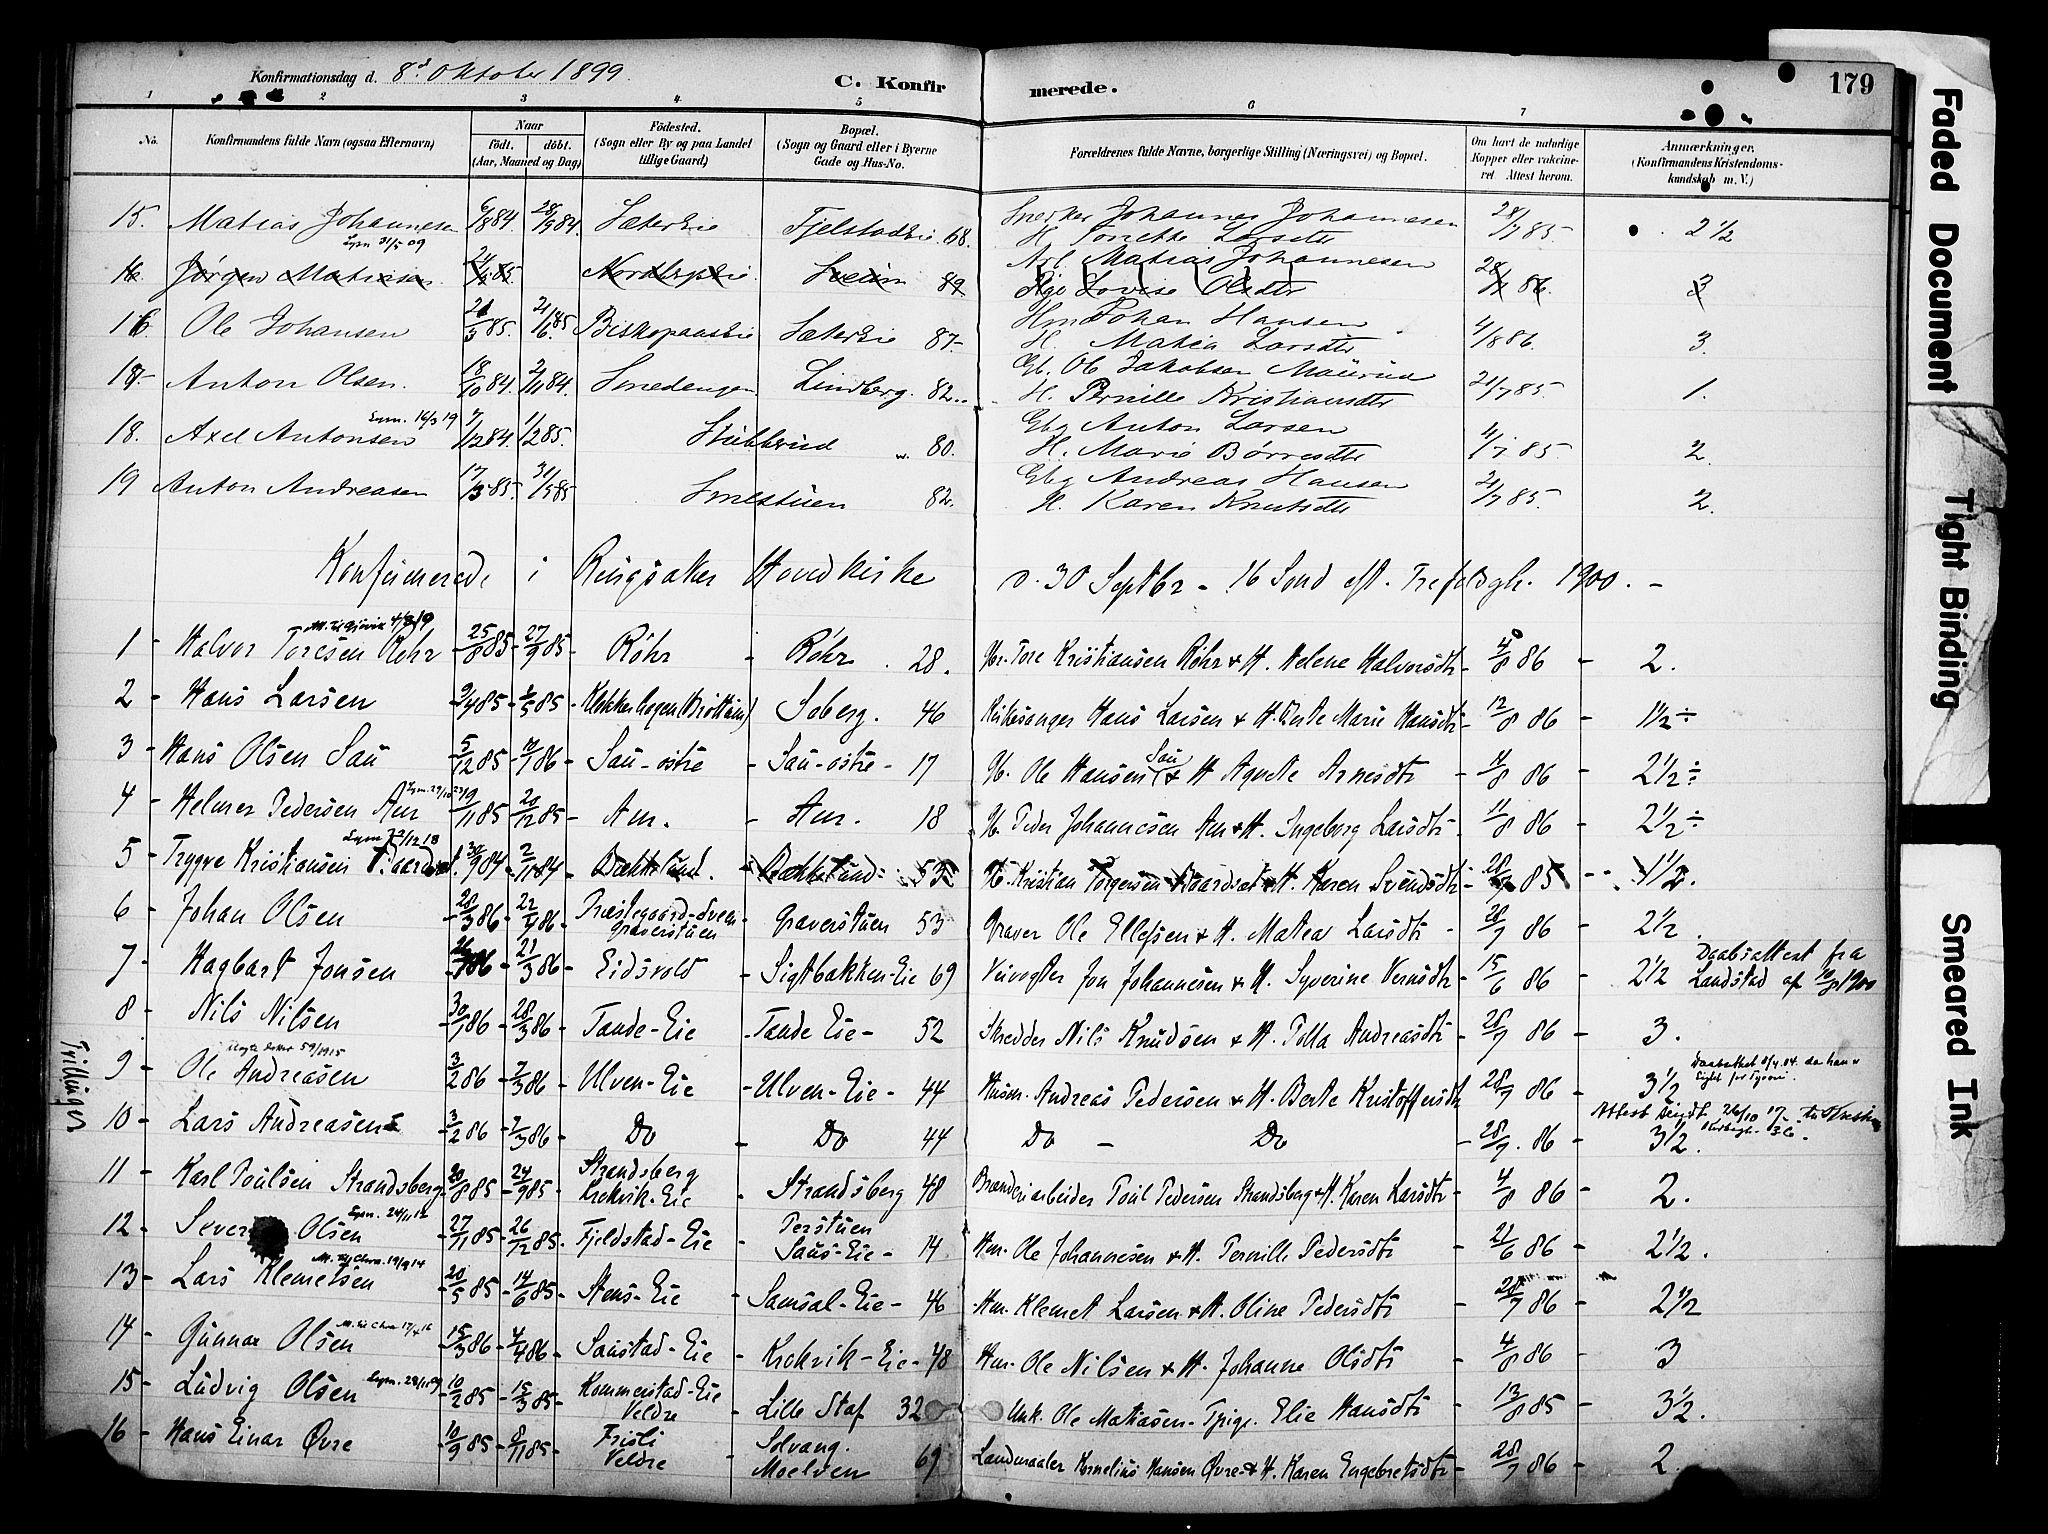 Konfirmationsdag d. 8d Oktober 1899. C. Konfirmerede. 179
1 2 3 4. 5 6 7
No. Konfirmandens fulde Navn (ogsaa Efternavn) Naar födt. döbt. (Aar, Maaned og Dag) Födested. (Sogn eller By og paa Landet tillige Gaard) Bopæl. (Sogn og Gaard eller i Byerne Gade og Hus-No. Forældrenes fulde Navne, borgerlige Stilling (Næringsvei) og Bopæl. Om havt de naturlige Kopper eller vakcineret Attest herom. Anmærkninger, (Konfirmandens Kristendomskundskab m. V.)
15. Matias Johannesen 6/8 84 28/9 84. Sæterbie Fjelstadbie 68. Snerker Johannes Johannesen 28/7 85 2 1/2
Lysn 31/5 09 H. Larsdtr
16. Jörgen Matiesen 85 Sveim 89 Arb. Matias Johannesen 86. 3
Pige Lovise Olsdtr
16 Ole Johansen 85. 21/6 85 Sæterbie 87- Hm Johan Hansen 4/8 86. 3.
H. Matea Larsdtr
17- Anton Olsen. 18/10 84. 2/11 84. Smedengen Lindberg. 82.. Gb. Ole Jakobsen 21/7 85. 1.
H. Pernille Kristiansdtr
18. Axel Antonsen 7/12 84. 1/2 85. Stubberud 80. Gbg Anton Larsen 4/7 85. 2.
Lysn. 16/3 19 H. Marie Börresdtr
19 Anton Andreasen 17/3 85. 31/5 85 Smestuen 82. Gbg Andreas Hansen 21/7 85. 2.
H. Karen Knutsdtr
Konfirmerede i Ringsaker Hovedkirke d. 30 Septbr - 16 Sond eft. Trefoldgh. 1900. -
M. til Gjövik 4/8 19
1 - Halvor Toresen Röhr - 25/8 85 - 27/9 85 - Röhr - Röhr . 28. Tore Kristiansen Röhr & H. Helene Halvorsdtr - 4/8 86 - 2.
2 - Hans Larsen - 9/4 85 - 85 - Klækkerhagen (Bröttum) - Soberg. 46 Kirkesanger Hans Larsen & H. Berte Marie Hansdtr - 12/8 86 - 1 1/2 ÷
3 - Hans Olsen Sau - 5/12 85 - 86 - Sau-östre - Sau-östre - 17 Ole Hansen Sau & H Agnete Arnesdtr - 4/8 86 - 2 1/2 ÷
4 - Helmer Pedersen Aur - 19/11 85 - 20/12 85 - Aur. - Aur. 18 Peder Johannesen Aur & H. Ingeborg Larsdtr - 11/8 86 - 2 1/2 ÷
5 - Trygve Kristiansen 84 - 2/11 84 - Bækkelund. - Bækkelund - 53 Kristian Torgersen & H. Karen Svendsdtr - 28/7 85 - 1 1/2.
6 - Johan Olsen - 28/3 86 - 22/4 86 - Præstegaard-Sveen - Graverstuen 53 Graver Ole Ellefsen & H. Matea Larsdtr - 28/7 86 - 2 1/2.
Graverstuen
7 - Hagbart Jonsen 86 - 21/3 86 - Eidsvold - Sigtbakken-Eie 69 Veivogter Jon Johannesen & H. Syverine Vernsdtr - 15/6 86 - 2 1/2 Daabsattest fra
Landstad af 1900
8 - Nils Nilsen - 30/1 86 - 28/3 86 - Tande-Eie - Tande Eie - 52 Skrædder Nils Knudsen & H. Andreasdtr - 28/7 86 - 3.
Tvillinger
9 - Ole Andreasen - 3/2 86 - 7/3 86 - Ulven-Eie - Ulven-Eie - 44 Husm. Andreas Pedersen & H. Berte Kristoffersdtr - 28/7 86 - 3 1/2 Daabattest
10 - Lars Andreasen - 3/2 86 - 7/3 86 - Do - Do 44 Do - Do - 28/7. 86 - 3 1/2.
11 - Karl Poulsen Strandsberg - 20/8 85 - 27/9 85 - Strandsberg - Strandsberg 48 Brænderiarbeider Poul Pedersen Strandsberg & H. Karen Larsdtr - 4/8 86 - 2.
Krekvik-Eie
12 - Olsen - 27/11 85 - 26/12 85 - Fjeldstad-Eie - Perstuen 14 Hm. Ole Johannesen & H. Pernille Pedersdtr - 21/6 86 - 2 1/2.
Lysn. 24/11 12 Saus-Eie
13 - Lars Klemetsen - 20/5 85 - 14/6 85 - Stens-Eie - Samsal-Eie - 46 Hm. Klemet Larsen & H. Oline Pedersdtr - 28/7 86 - 2 1/2
14 - Gunnar Olsen - 15/3 86 - 4/4 86 - Saustad-Eie - Krekvik-Eie - 48 Hm. Ole Nilsen & H. Johanne Olsdtr - 4/8 86 - 3
15 - Ludvig Olsen - 10/2 85 - 15/3 85 - Kommerstad-Eie - Lille Staf 32 Unk. Ole Matiasen - Pige. Elie Hansdtr - 13/8 85 - 3 1/2.
Veldre
16 - Hans Einar Övre - 10/9 85 - 8/11 85 - Fristi Solvang. 69 Landmaaler Kornelius Hansen Övre & H. Karen Engebretsdtr - 28/7 86 - 2
Veldre Moelven
Faded Document
Tight Binding
Smeared Ink